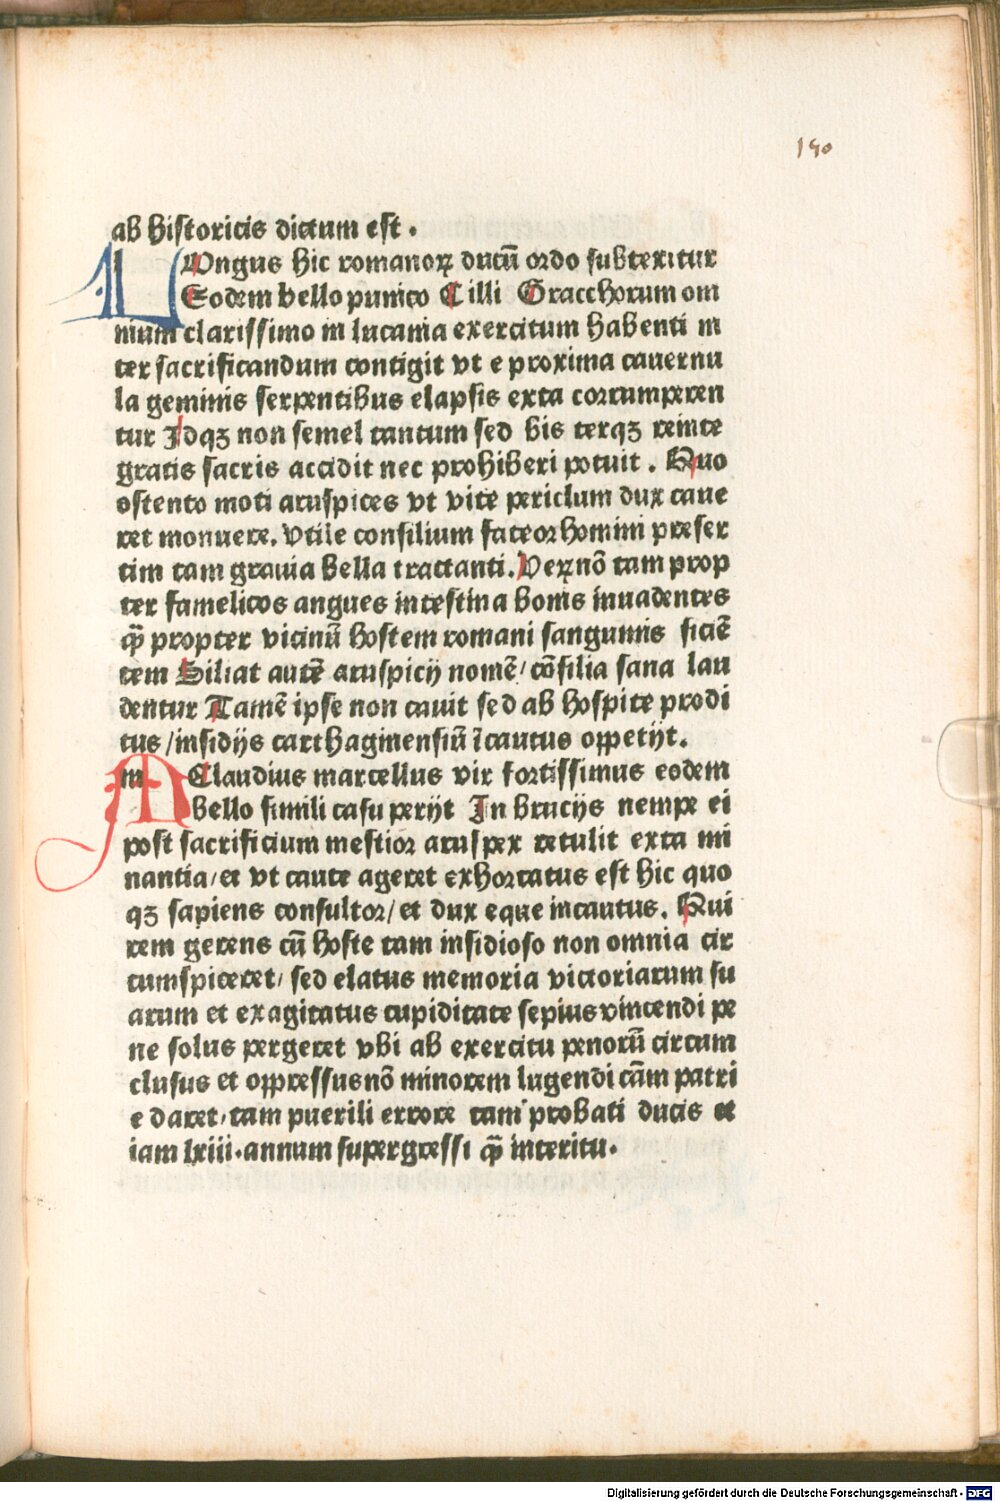 150
ab historicis dictum est.
LOngus hic romanoꝝ ducū ordo subtexitur
Eodem bello punico Cilli Gracchorum om
nium clarissimo in lucania exercitum habenti in
ter sacrificandum contigit vt e proxima cauernu
la geminis serpentibus elapsis exta corrumperen
tur Idqꝫ non semel tantum sed bis terqꝫ reinte
gratis sacris accidit nec prohiberi potuit. Quo
ostento moti aruspices vt vite periclum dux caue
ret monuere. Vtile consilium fateor homini preser
tim tam grauia bella tractanti. Veꝝ nō tam prop
ter famelicos angues intestina bouis inuadentes
qȝ̄ propter vicinū hostem romani sanguinis siciē
tem Siliat autē aruspicij nomē/ cōsilia sana lau
dentur Tamē ipse non cauit sed ab hospite prodi
tus/insidijs carthaginensiū īcautus oppetijt.
M Claudius marcellus vir fortissimus eodem
bello simili casu perijt In brucijs nempe ei
post sacrificium mestior aruspex retulit exta mi
nantia/et vt caute ageret exhortatus est hic quo
qꝫ sapiens consultor/et dux eque incautus. Qui
rem gerens cū hoste tam insidioso non omnia cir
cumspiceret/ sed elatus memoria victoriarum su
arum et exagitatus cupiditate sepius vincendi pe
ne solus pergeret vbi ab exercitu penorū circum
clusus et oppressus nō minorem lugendi cām patri
e daret/tam puerili errore tam probati ducis et
iam lxiii.annum supergressi qȝ̄ interitu.
Digitalisierung gefördert durch die Deutsche Forschungsgemeinschaft - DFG